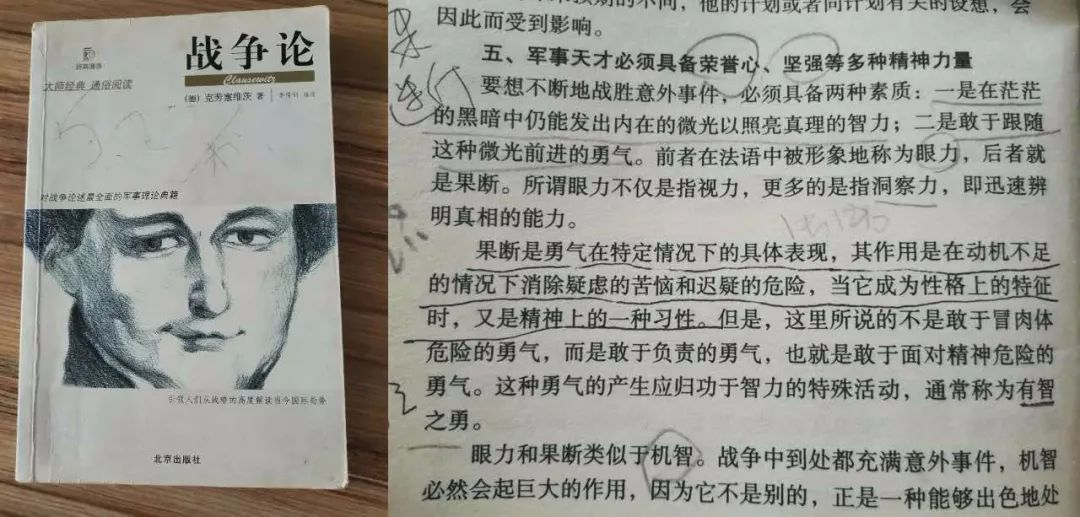 战争论
Clausewitz
大师经典 通俗阅读
(德) 克劳塞维茨 著
对战争论述最全面的军事理论典籍
引领人们从战略的高度解读当今国际局势
北京出版社
因此而受到影响。
五、军事天才必须具备荣誉心、坚强等多种精神力量
要想不断地战胜意外事件，必须具备两种素质：一是在茫茫
的黑暗中仍能发出内在的微光以照亮真理的智力；二是敢于跟随
这种微光前进的勇气。前者在法语中被形象地称为眼力，后者就
是果断。所谓眼力不仅是指视力，更多的是指洞察力，即迅速辨
明真相的能力。
果断是勇气在特定情况下的具体表现，其作用是在动机不足
的情况下消除疑虑的苦恼和迟疑的危险，当它成为性格上的特征
时，又是精神上的一种习性。但是，这里所说的不是敢于冒肉体
危险的勇气，而是敢于负责的勇气，也就是敢于面对精神危险的
勇气。这种勇气的产生应归功于智力的特殊活动，通常称为有智
之勇。
眼力和果断类似于机智。战争中到处都充满意外事件，机智
必然会起巨大的作用，因为它不是别的，正是一种能够出色地处